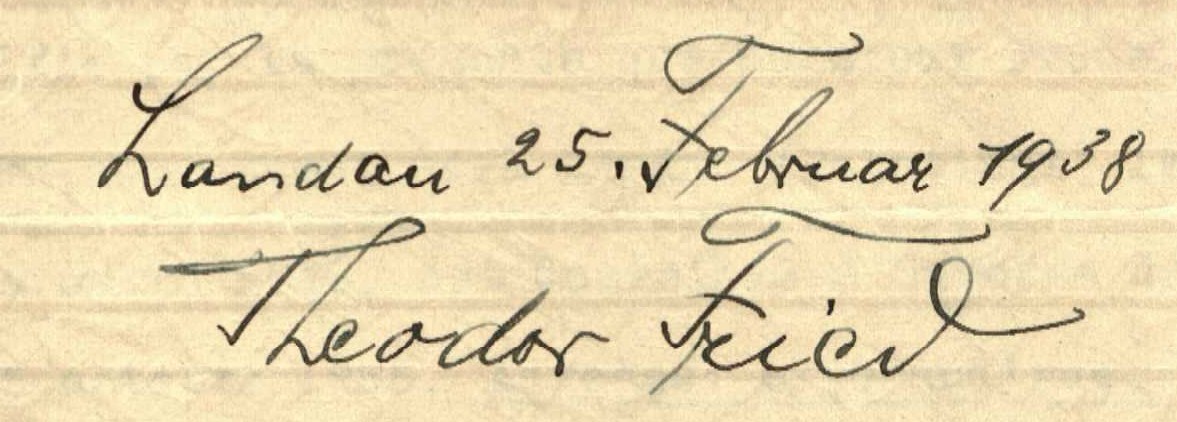 Landau 25. Februar 1938
Theodor Fried